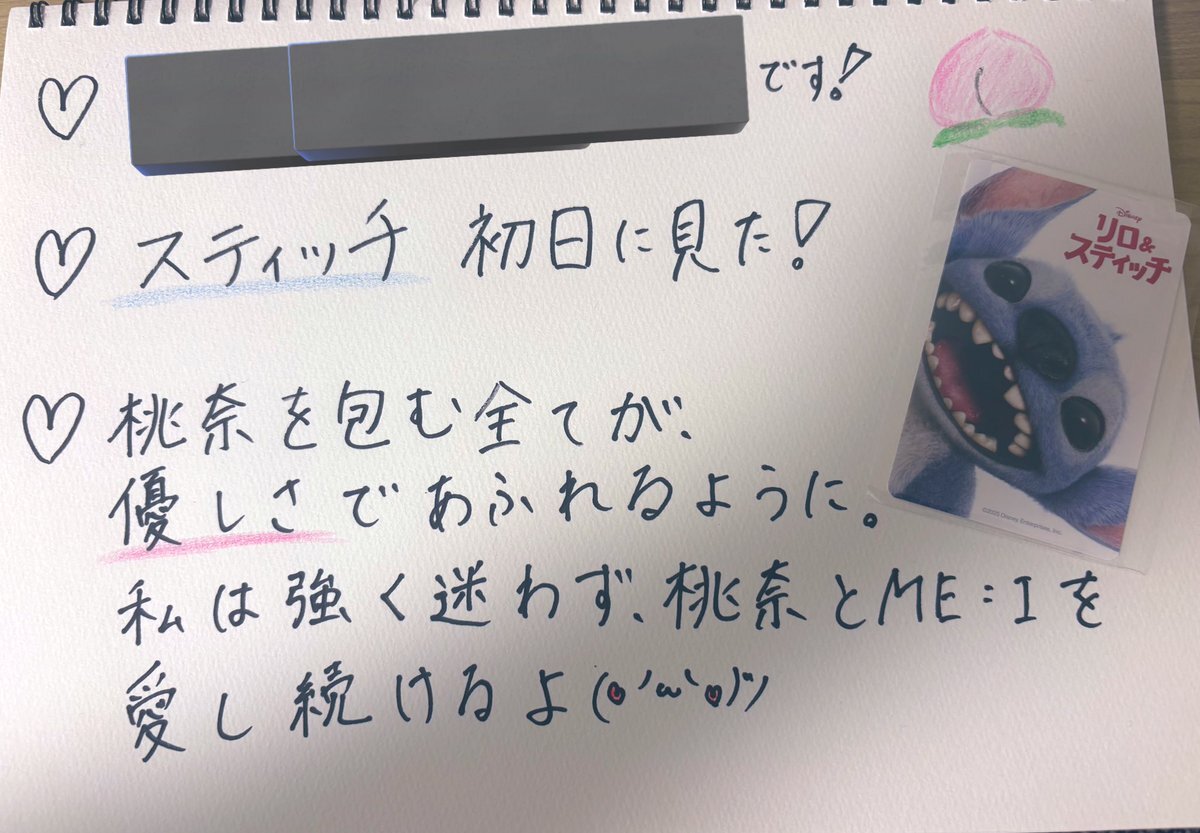 ♡ です!
♡ スティッチ 初日に見た!
Disney
リロ&
スティッチ
©2025 Disney Enterprises, Inc.
♡ 桃奈を包む全てが、
優しさであふれるように。
私は強く迷わず、桃奈とME:Iを
愛し続けるよ(o'ω'o)ツ